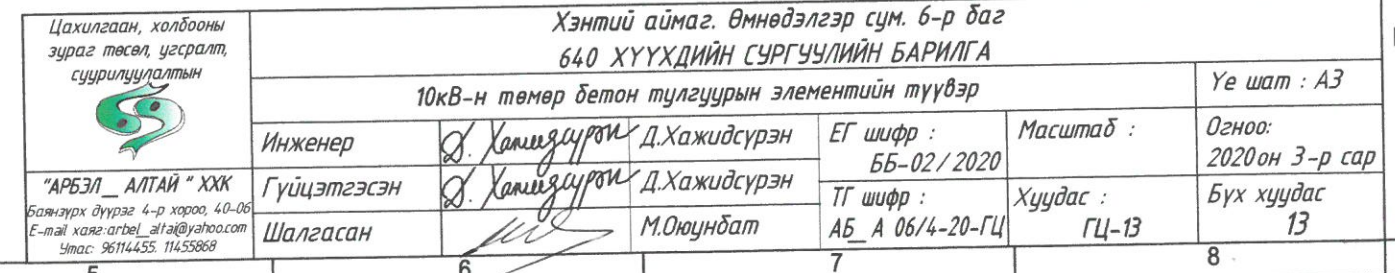 Цахилгаан, холбооны
зураг төсөл, угсралт,
суурилуулалтын
"АРБЭЛ _ АЛТАЙ " ХХК
Баянзүрх дүүрэг 4-р хороо, 40-06
E-mail хаяг:arbel_altai@yahoo.com
Утас: 96114455. 11455868
Хэнтий аймаг. Өмнөдэлгэр сум. 6-р баг
640 ХҮҮХДИЙН СУРГУУЛИЙН БАРИЛГА
10кВ-н төмөр бетон тулгуурын элементийн түүвэр
Үе шат : А3
Инженер Д. Хажидсүрэн Д.Хажидсүрэн
ЕГ шифр :
ББ-02/2020
Масштаб :
Огноо:
2020он 3-р сар
Гүйцэтгэсэн Д. Хажидсүрэн Д.Хажидсүрэн
Шалгасан М.Оюунбат
ТГ шифр :
АБ_ А 06/4-20-ГЦ
Хуудас :
ГЦ-13
Бүх хуудас
13
5 6 7 8